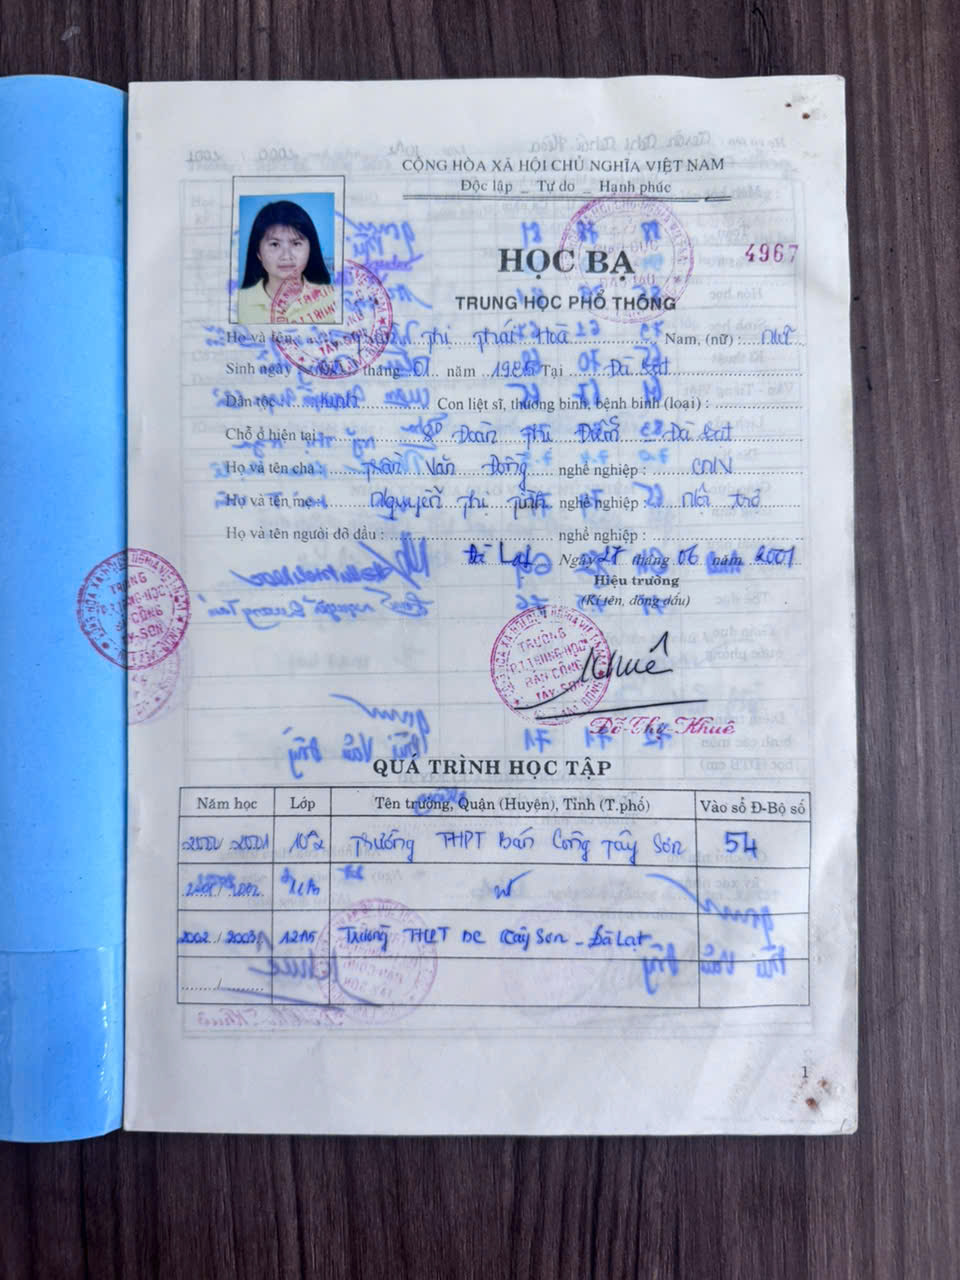 CỘNG HÒA XÃ HỘI CHỦ NGHĨA VIỆT NAM
Độc lập _ Tự do _ Hạnh phúc
HỌC BẠ
4967
TRUNG HỌC PHỔ THÔNG
Họ và tên Thị Thái Hoà Nam, (nữ) : Nữ
Sinh ngày tháng 01 năm 1985 Tại Đà Lạt
Dân tộc Kinh Con liệt sĩ, thương binh, bệnh binh (loại) :
Chỗ ở hiện tại : Đoàn Thị Điểm Đà Lạt
Họ và tên cha : Trần Văn Đông nghề nghiệp : CNV
Họ và tên mẹ Nguyễn Thị Tịnh nghề nghiệp : Nội trợ
Họ và tên người đỡ đầu : nghề nghiệp :
Đà Lạt Ngày 27 tháng 06 năm 2001
Hiệu trưởng
(Kí tên, đóng dấu)
TRƯỜNG
P.T TRUNG HỌC
BÁN CÔNG
TÂY SƠN
Khuê
Đỗ Thy Khuê
QUÁ TRÌNH HỌC TẬP
Năm học Lớp Tên trường, Quận (Huyện), Tỉnh (T.phố) Vào sổ Đ-Bộ số
2000/2001 Trường THPT Bán Công Tây Sơn 54
2001/2002
2002/2003 Trường THPT BC Tây Sơn _ Đà Lạt
1